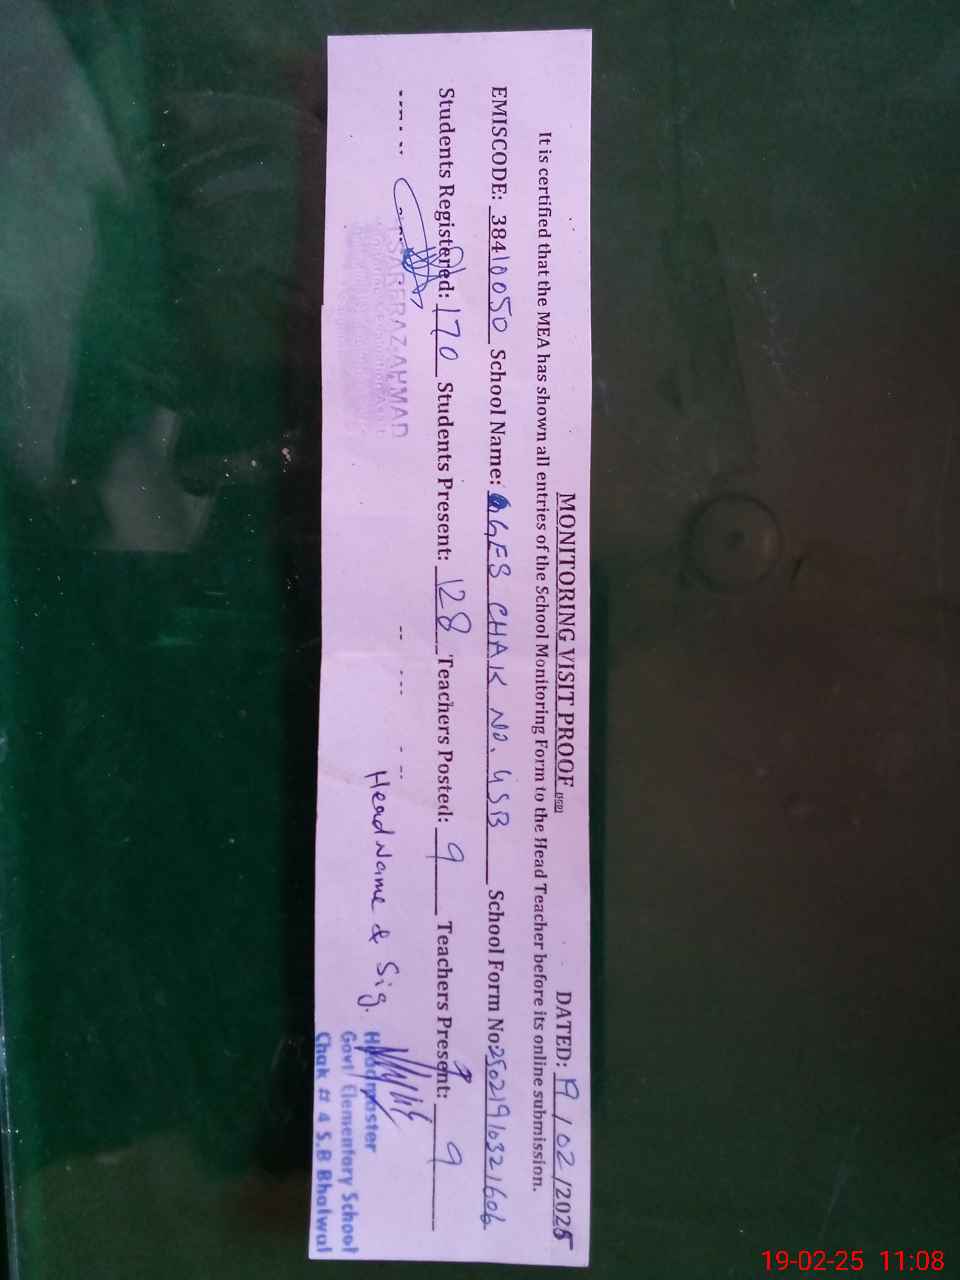 MONITORING VISIT PROOF
DATED: 19/02/2025
It is certified that the MEA has shown all entries of the School Monitoring Form to the Head Teacher before its online submission.
EMISCODE: 38410050 School Name: GES CHAK NO. 4SB School Form No: 25021910321606
Students Registered: 170 Students Present: 128 Teachers Posted: 9 Teachers Present: 9
SARFRAZ AHMAD
Head Name & Sig.
Headmaster
Govt Elementary School
Chak # 4 S.B Bhalwal
19-02-25 11:08